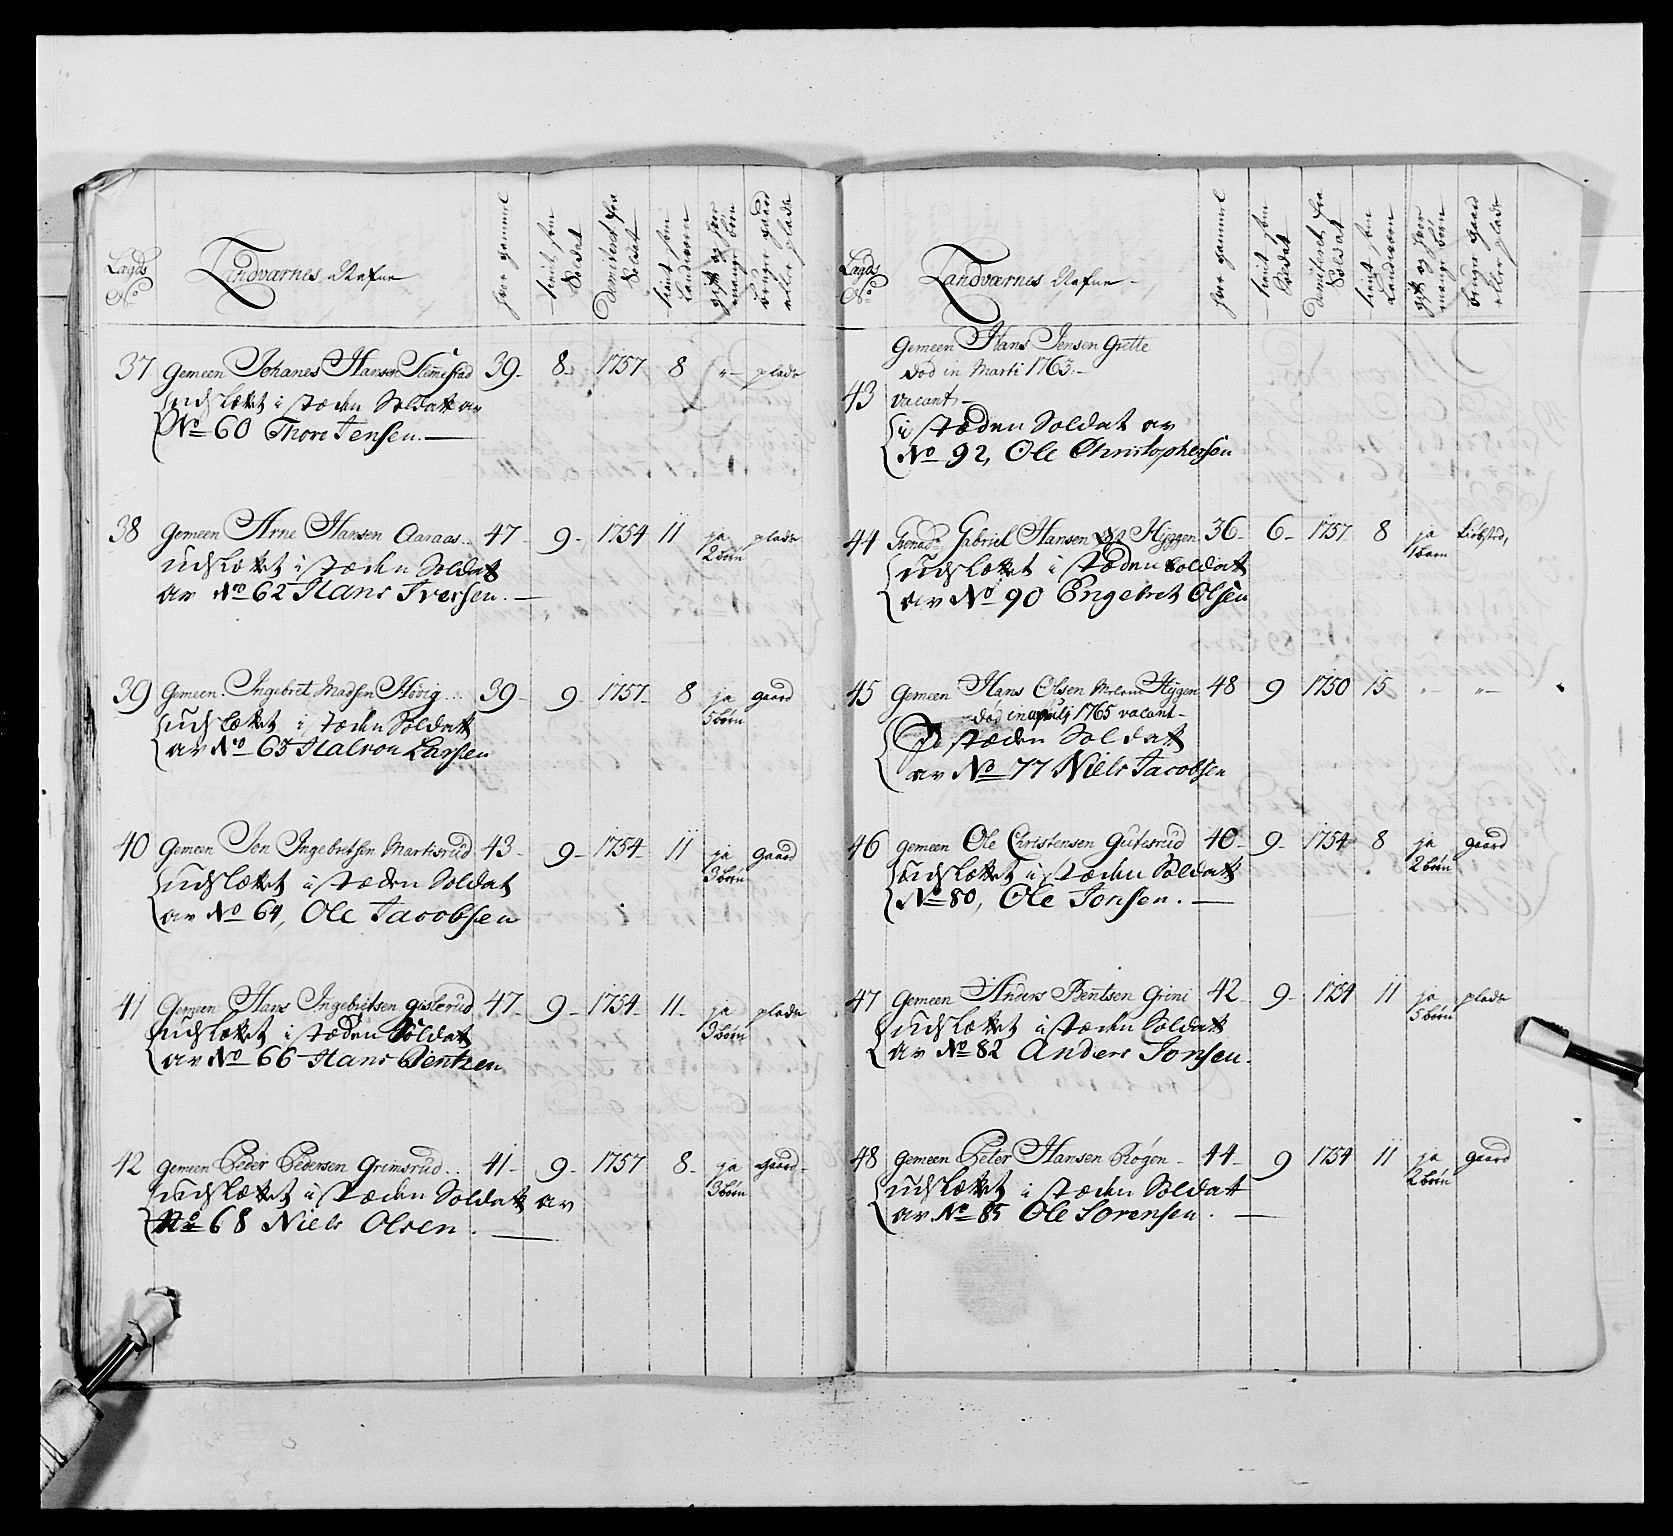 Lagds No
Landværnes Nafne
hvor gammel
tient som Soldat
dimiteret fra Soldat
tient som Landværn
gift og hvor mange børn
bruger gaard eller plads
37 Gemeen Johanes Hansen Slemestad 39 - 8 - 1757 8 "- plads
udslættet i stæden Soldat av
No 60 Thore Jensen. —
38 Gemeen Arne Hansen Aaraas .. 47 - 9 - 1754 11 ja 2 børn plads
udslættet i stæden Soldat
av No 62 Hans Iversen. —
39 Gemeen Ingebret Madsen Høvig .. 39 - 9 - 1757 - 8 ja 5 børn gaard
udslættet i stæden Soldat
av No 63 Halvor Larsen
40 Gemeen Jon Ingebretsen Martisrud 43 - 9 - 1754 - 11 ja 3 børn Gaard
udslættet i stæden Soldat
av No 64, Ole Jacobsen
41 Gemeen Hans Ingebretsen Gislerud 47 - 9 - 1754 - 11 - ja 3 børn plads
udslættet i stæden Soldat
av No 66 Hans Bentzen
42 Gemeen Peder Pedersen Grimsrud .. 41 - 9 - 1757 8 - ja 3 børn Gaard -
udslættet i stæden Soldat av
No 68 Niels Olsen. —
Lagds No
Landværnes Nafne -
hvor gammel
tient som Soldat
dimiteret fra Soldat
tient som Landværn
gift og hvor mange børn
bruger gaard eller plads
Gemeen Hans Jensen Grette
Død in Marti 1763 -
43 vacant -
i stæden Soldat av
No 92, Ole Christophersen
44 Gabriel Hansen Hyggen 36 - 6 - 1757 8 ja 1 barn
udslættet i stæden Soldat
av No 90 Engebret Olsen
45 Gemeen Hans Olsen Hygen 48 9 1750 15 "- "-
død in aprilj 1765 vacant -
stæden Soldat
av No 77 Niels Jacobsen
46 Gemeen Ole Christensen Gutesrud 40 - 9 - 1754 8 ja 2 børn gaard
udslættet i stæden Soldat
No 80, Ole Jonsen. —
47 Gemeen Anders Bentsen Grini 42 9 - 1754 11 ja 5 børn plads
udslættet i stæden Soldat
av No 82 Anders Jonsen.
48 Gemeen Peter Hansen Røgen - 44 - 9 1754 11 ja 2 børn gaard
udslættet i stæden Soldat
av No 85 Ole Sorensen. —